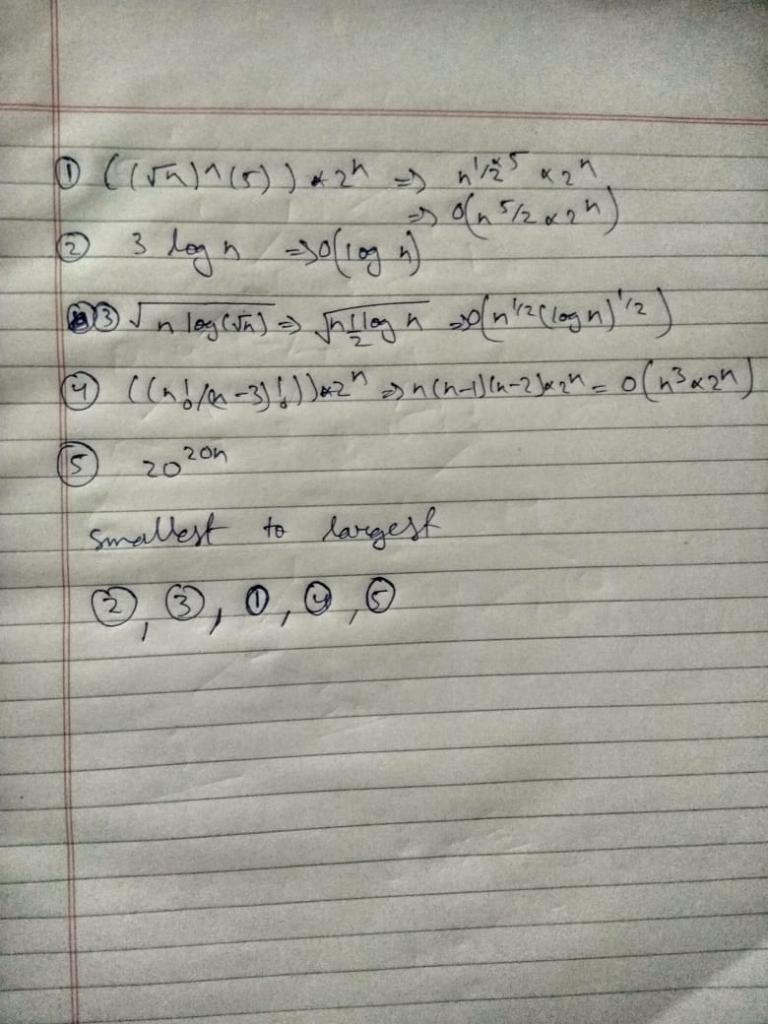 ① ((√n)^(5)) * 2ⁿ ⇒ n^(1/2 * 5) * 2ⁿ
⇒ O(n^(5/2) * 2ⁿ)
② 3 log n ⇒ O(log n)
③ √(n log(√n)) ⇒ √(n 1/2 log n) ⇒ O(n^(1/2) (log n)^(1/2))
④ ((n!/(n-3)!)) * 2ⁿ ⇒ n(n-1)(n-2) * 2ⁿ = O(n³ * 2ⁿ)
⑤ 20^(20n)
smallest to largest
②, ③, ①, ④, ⑤